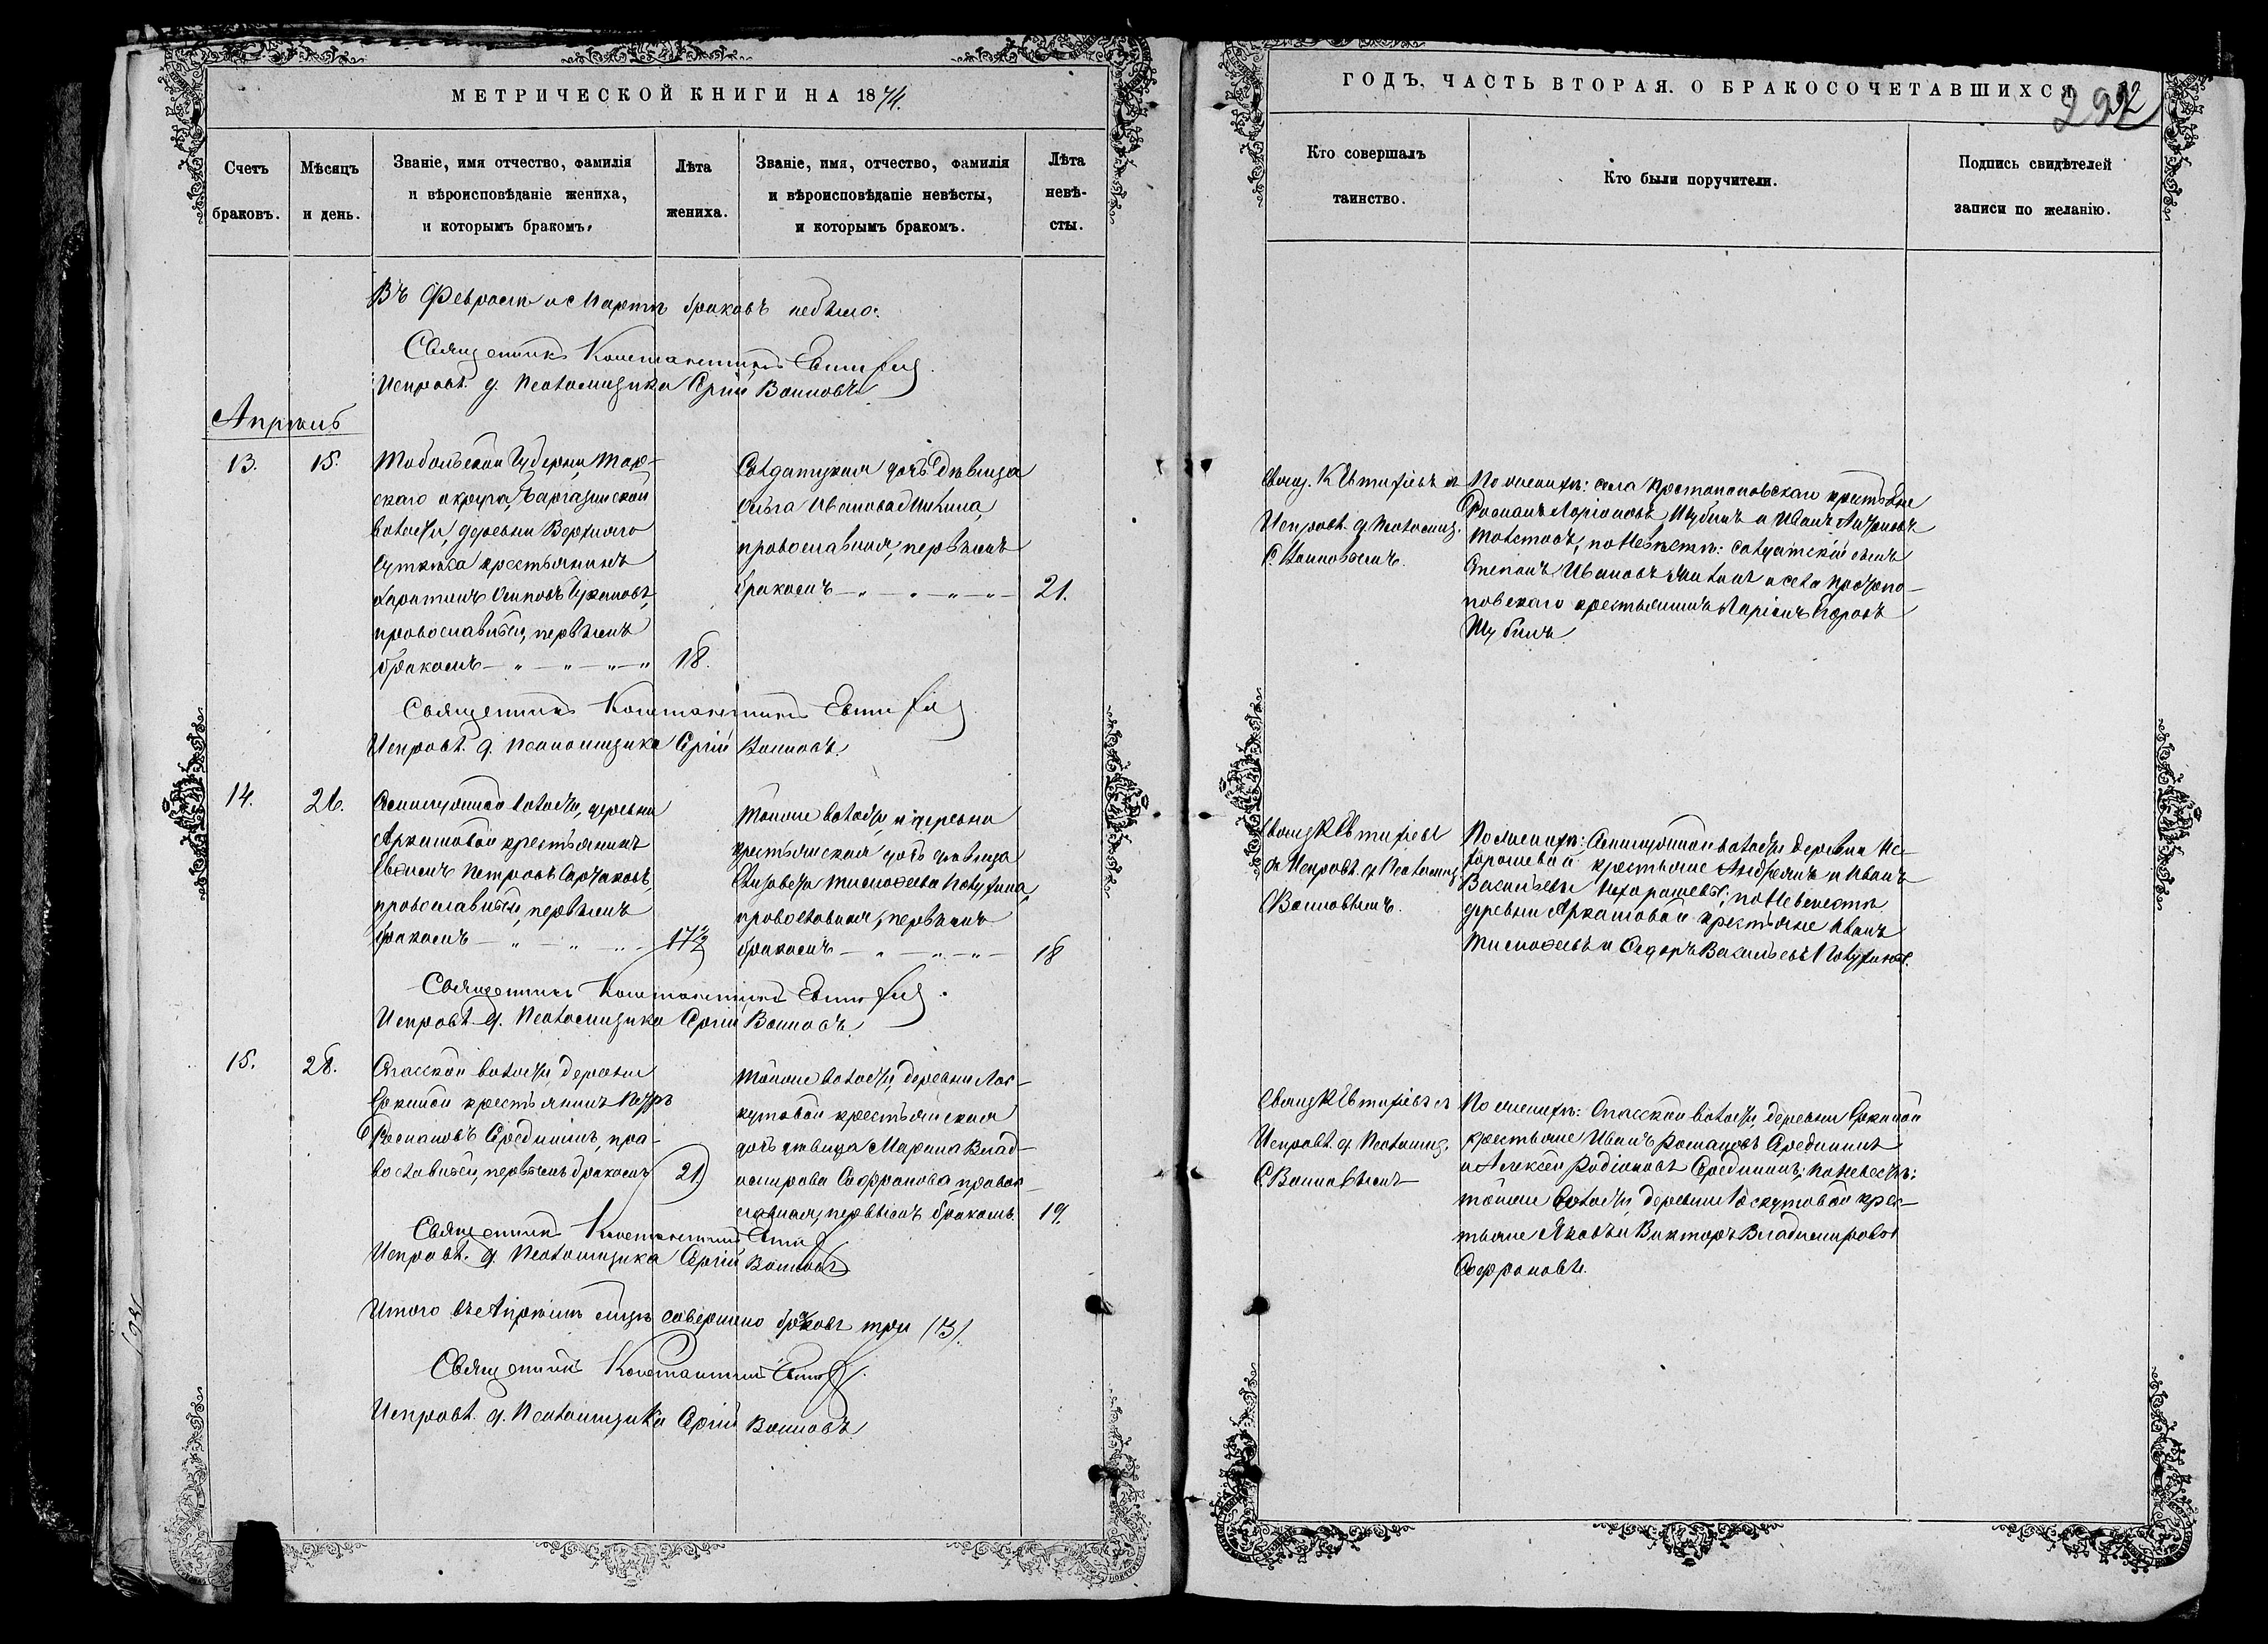 МЕТРИЧЕСКОЙ КНИГИ НА 1874.
Счетъ
браковъ.
Мѣсяцъ
и день.
Званіе, имя отчество, фамилія
и вѣроисповѣданіе жениха,
и которымъ бракомъ.
Лѣта
жениха.
Званіе, имя, отчество, фамилія
и вѣроисповѣданіе невѣсты,
и которымъ бракомъ.
Лѣта
невѣ-
сты.
Въ Февралѣ и Мартѣ браковъ небыло.
Священникъ Константинъ
Исправл. д. Псаломщика Сергій Воиновъ
Апрѣль
13.
15.
Тобольской Губерніи Тар-
скаго округа,
волости, деревни Верхняго
крестьянинъ
Харитонъ Осиповъ
православный, первымъ
бракомъ
18.
Солдатская дочь дѣвица
Ольга Иванова
православная, первымъ
бракомъ
21.
Священникъ Константинъ
Исправл. д. Псаломщика Сергій Воиновъ.
14.
26.
волости, деревни
Аркашовой крестьянинъ
Петровъ
православный, первымъ
бракомъ
17½
Тойже волости и деревни
крестьянская дочь дѣвица
Елизавета Тимофеева Полухина,
православная, первымъ
бракомъ
18
Священникъ Константинъ
Исправл. д. Псаломщика Сергій Воиновъ
15.
28.
Спасской волости, деревни
крестьянинъ Петръ
Романовъ Средининъ, пра-
вославный, первымъ бракомъ
21
Тойже волости, деревни Лос-
кутовой крестьянская
дочь дѣвица Марина Влад-
имирова Софронова правос-
лавная, первымъ бракомъ.
19.
Священникъ Константинъ
Исправл. д. Псаломщика Сергій Воиновъ
Итого въ Апрѣлѣ м͠цѣ совершено браковъ три (3).
Священникъ Константинъ
Исправл. д. Псаломщика Сергій Воиновъ
ГОДЪ, ЧАСТЬ ВТОРАЯ. О БРАКОСОЧЕТАВШИХСЯ
292
Кто совершалъ
таинство.
Кто были поручители.
Подпись свидѣтелей
записи по желанію.
Свящ. К. Евтифіевъ съ
Исправл. д. Псаломщ.
С. Воиновымъ.
По женихѣ: села Протопоповскаго крестьяне
Романъ Ларіоновъ Шубинъ и Иванъ
по Невѣстѣ: солдатскій сынъ
Степанъ Ивановъ и села Протопо-
повскаго крестьянинъ Ларіонъ Егоровъ
Шубинъ.
Свящ К Евтифіевъ
съ Исправл. д Псаломщ.
С Воиновымъ.
По женихѣ: волости деревни Не-
хорошевой крестьяне Андреянъ и Иванъ
Васильевы Нехорошевы; по Невѣстѣ
деревни Аркашовой крестьяне Иванъ
Тимофеевъ и Сидоръ Васильевъ Полухины.
Свящ К Евтифіевъ съ
Исправл. д. Псаломщ.
С. Воиновымъ
По женихѣ: Спасской волости, деревни
крестьяне Иванъ Романовъ Средининъ
и Алексей Родіоновъ Средининъ; по Невѣстѣ:
тойже волости, деревни Лоскутовой крес-
тьяне Яковъ и Викторъ Владимировы
Софроновы.